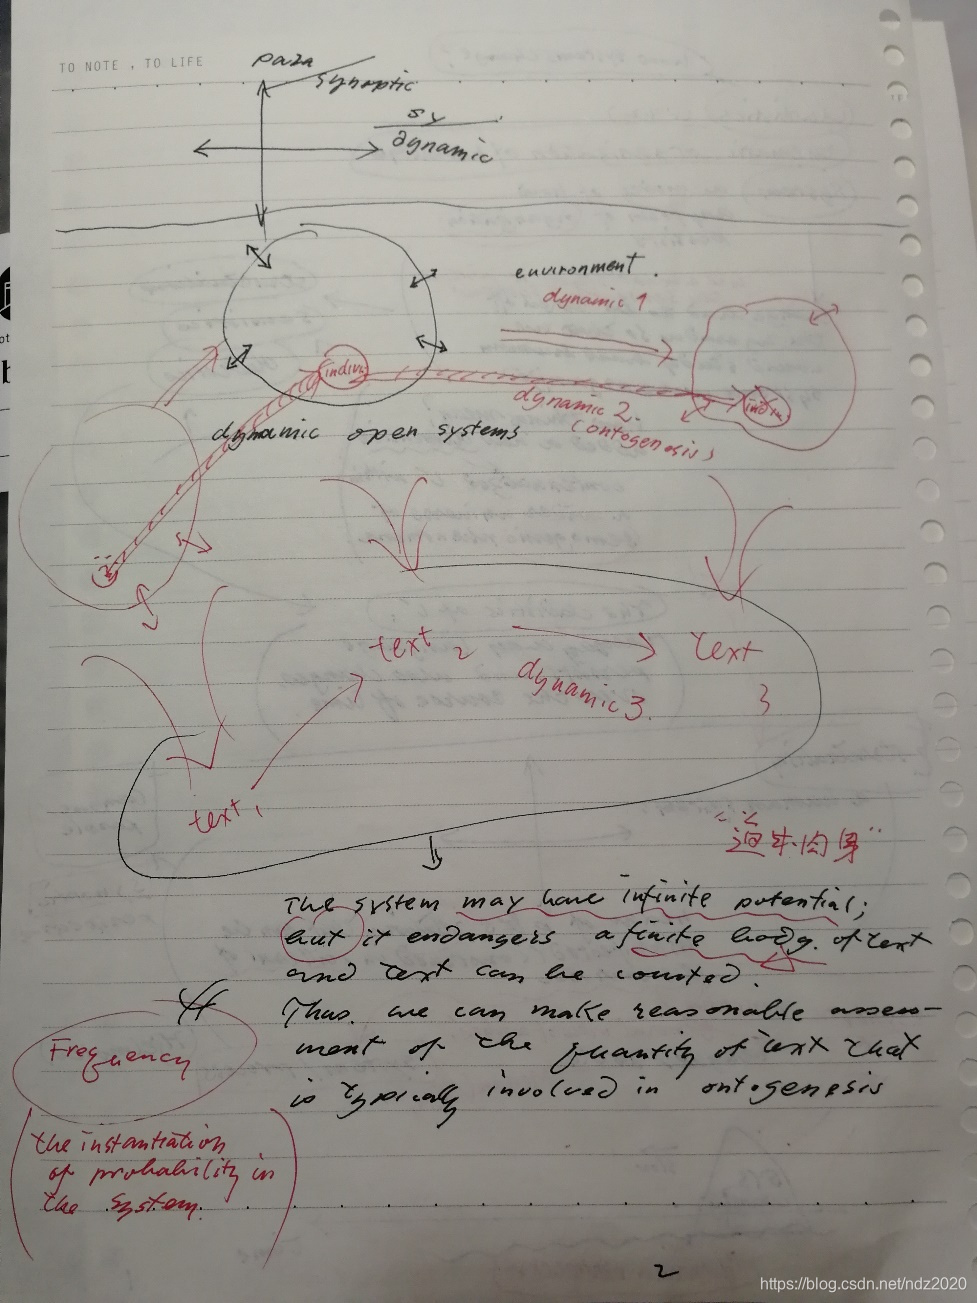 TO NOTE , TO LIFE
para
synoptic
sy
dynamic
environment .
dynamic 1
indiv.
indiv.
dynamic 2.
(ontogenesis)
dynamic open systems
text 2
text
3
dynamic 3.
text 1
肉身”
The system may have infinite potential;
but it endangers a finite body. of text
and text can be counted.
Thus. we can make reasonable assess-
ment of the quantity of text that
is typically involved in ontogenesis
Frequency
the instantiation
of probability in
the system.
2
https://blog.csdn.net/ndz2020